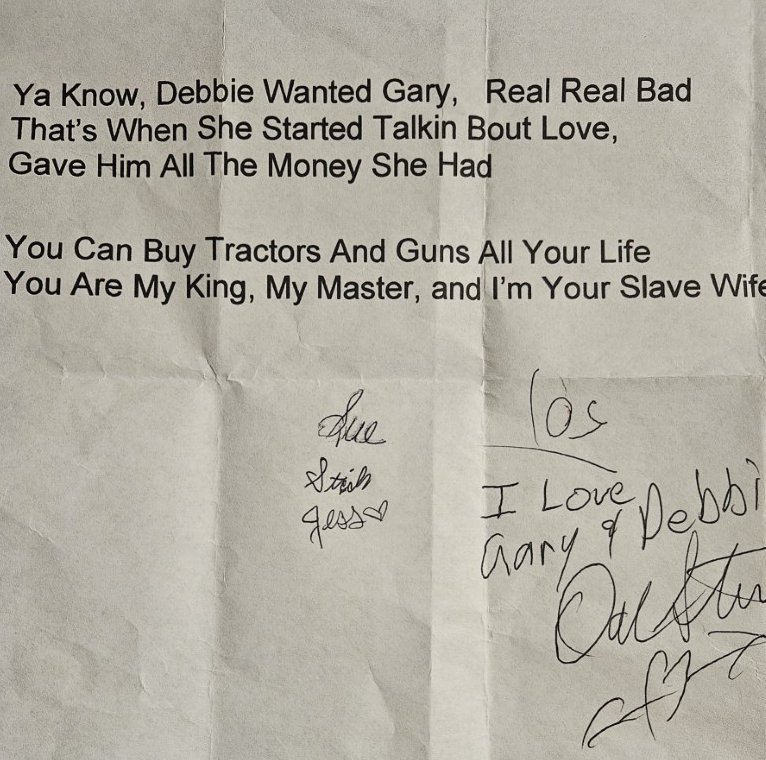 Ya Know, Debbie Wanted Gary, Real Real Bad
That's When She Started Talkin Bout Love,
Gave Him All The Money She Had
You Can Buy Tractors And Guns All Your Life
You Are My King, My Master, and I'm Your Slave Wife
Sue
Jess♡
I Love
Gary & Debbi